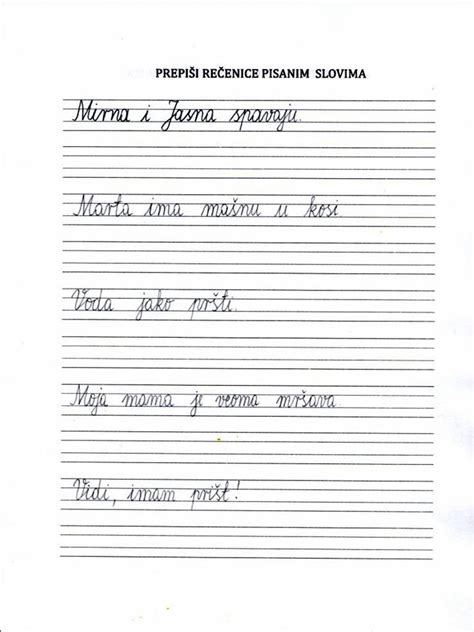 PREPIŠI REČENICE PISANIM SLOVIMA
Mirna i Jasna spavaju.
Marta ima mašnu u kosi
Voda jako pršti.
Moja mama je veoma mršava.
Vidi, imam prišt!